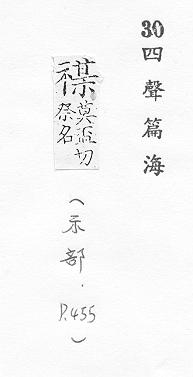 30四聲篇海
禖
莫盃切
祭名
(示部.P.455)